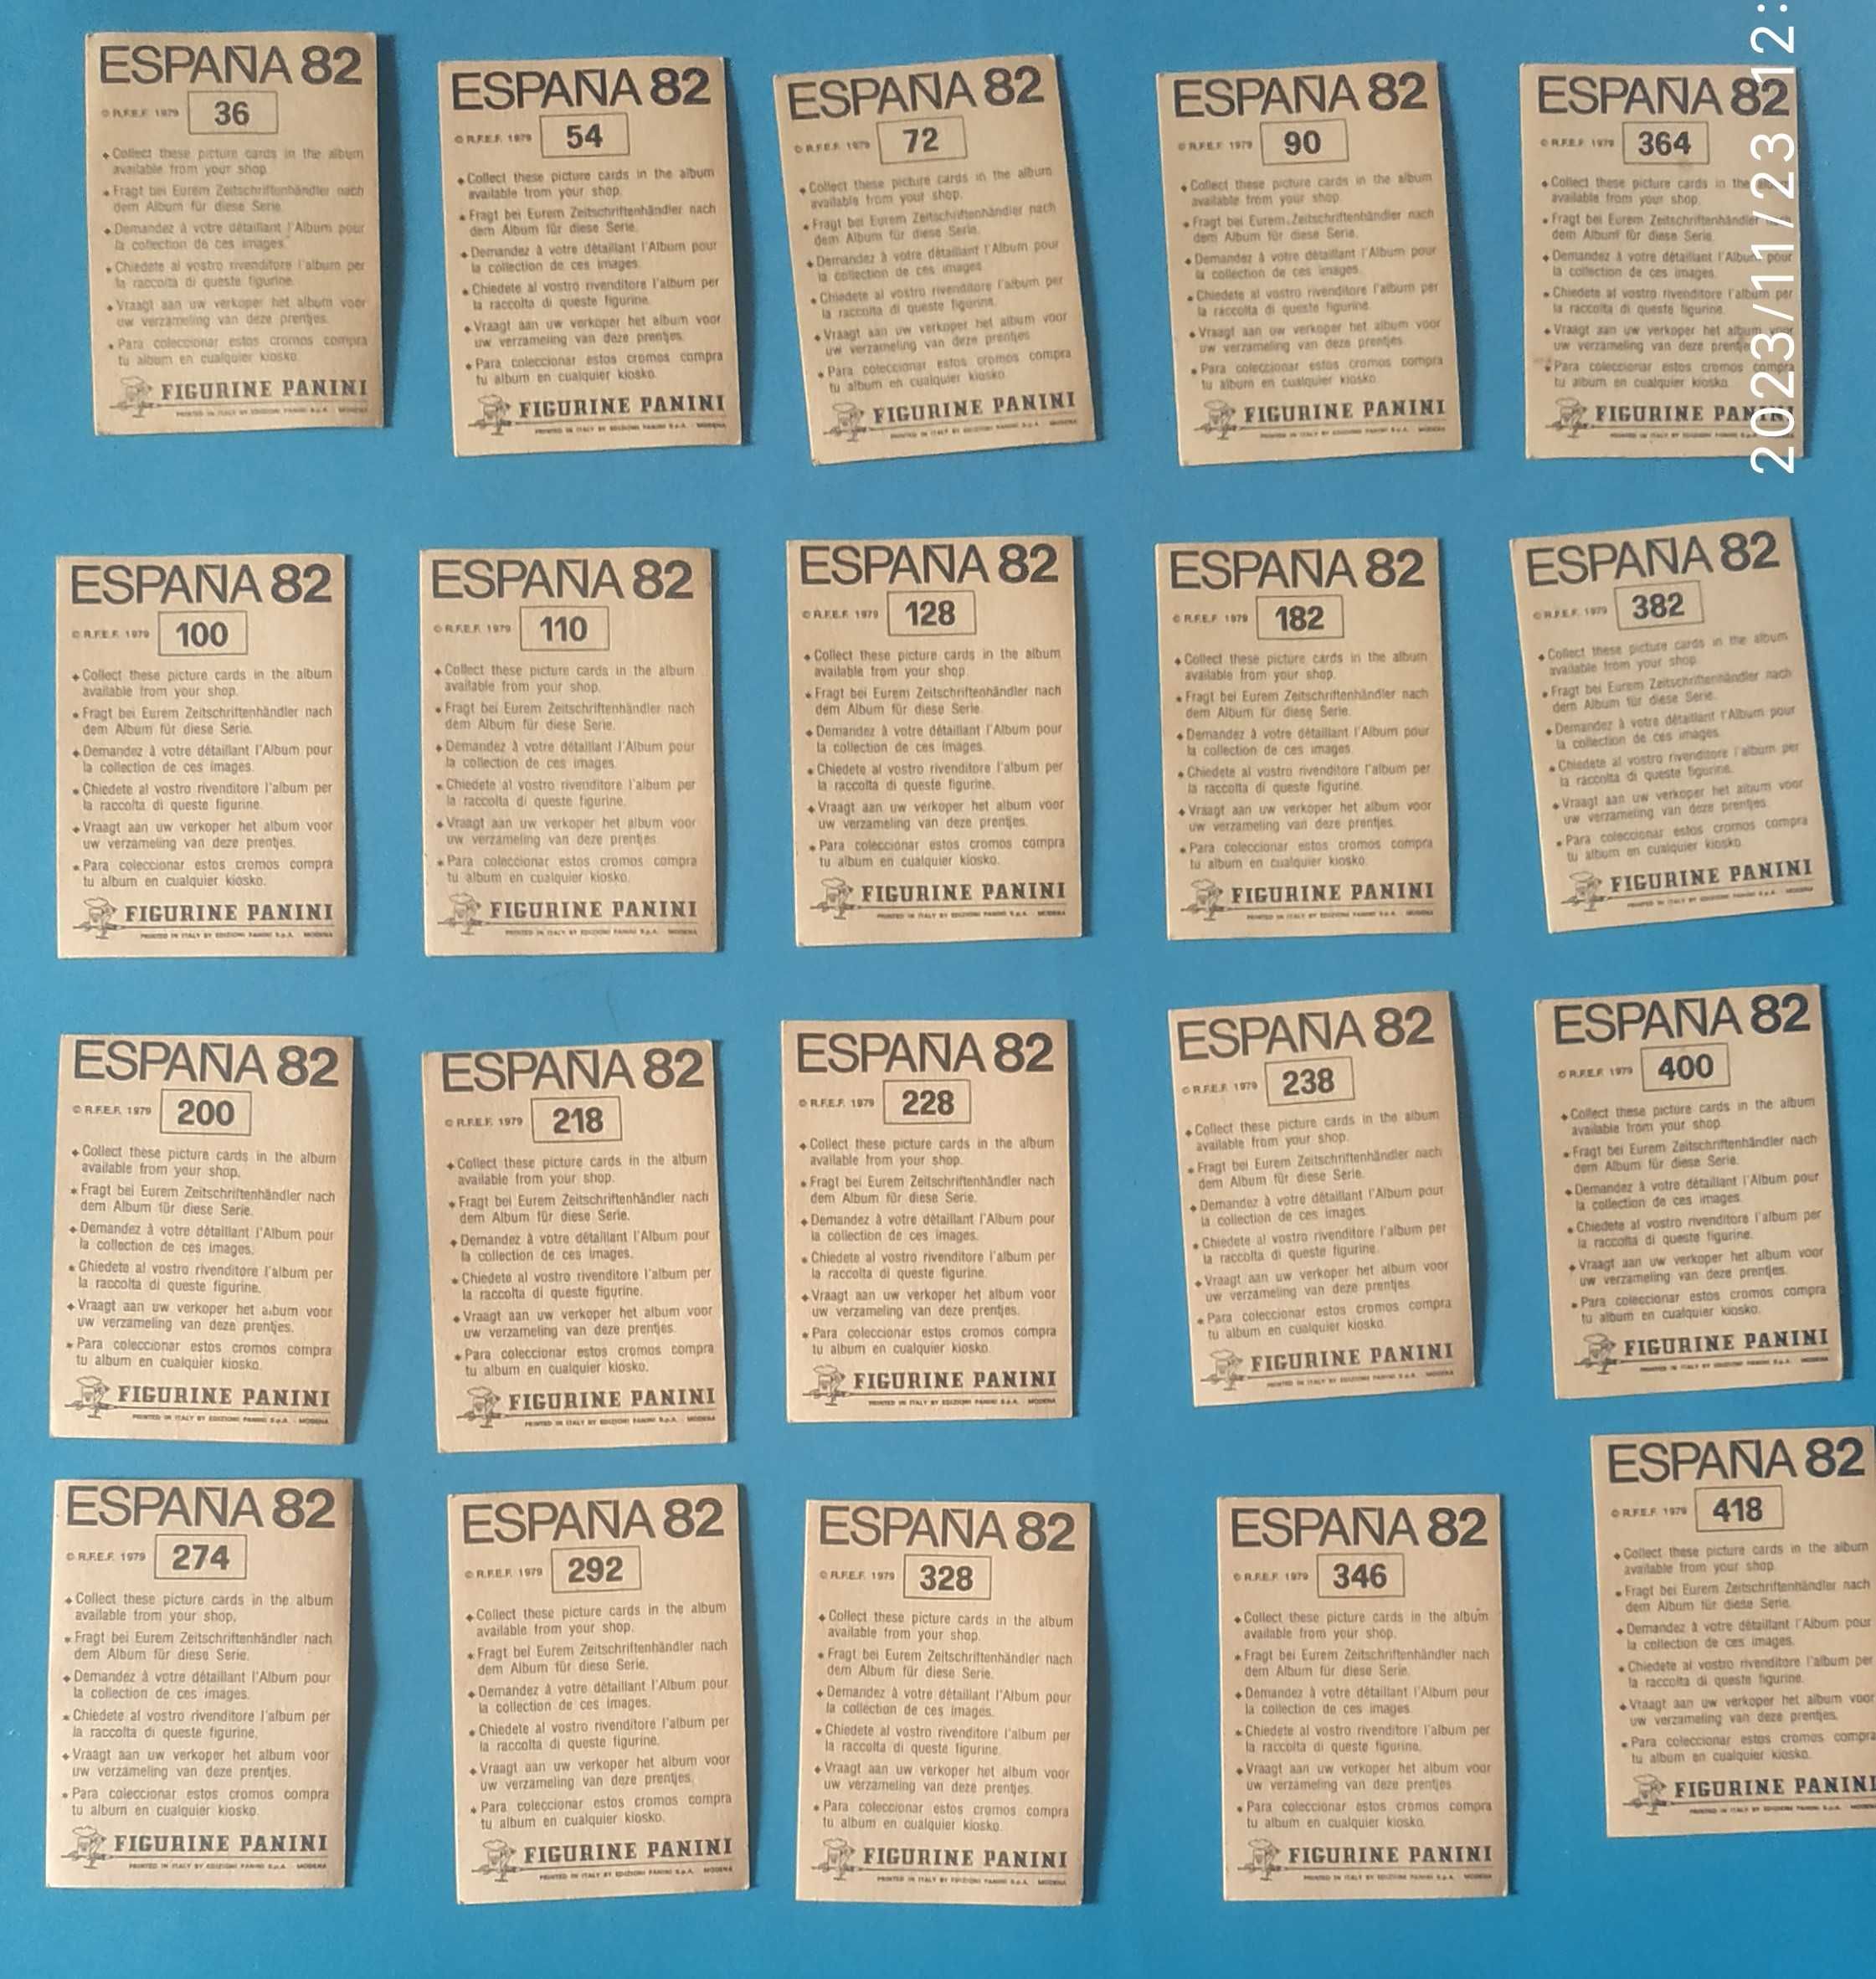 ESPAÑA 82
© R.F.E.F. 1979 36
Collect these picture cards in the album
available from your shop.
Fragt bei Eurem Zeitschriftenhändler nach
dem Album für diese Serie.
Demandez à votre détaillant l'Album pour
la collection de ces images.
Chiedete al vostro rivenditore l'album per
la raccolta di queste figurine.
Vraagt aan uw verkoper het album voor
uw verzameling van deze prentjes.
Para coleccionar estos cromos compra
tu album en cualquier kiosko.
FIGURINE PANINI
PRINTED IN ITALY BY EDIZIONI PANINI S.p.A. - MODENA
ESPAÑA 82
© R.F.E.F. 1979 54
Collect these picture cards in the album
available from your shop.
Fragt bei Eurem Zeitschriftenhändler nach
dem Album für diese Serie.
Demandez à votre détaillant l'Album pour
la collection de ces images.
Chiedete al vostro rivenditore l'album per
la raccolta di queste figurine.
Vraagt aan uw verkoper het album voor
uw verzameling van deze prentjes.
Para coleccionar estos cromos compra
tu album en cualquier kiosko.
FIGURINE PANINI
PRINTED IN ITALY BY EDIZIONI PANINI S.p.A. - MODENA
ESPAÑA 82
© R.F.E.F. 1979 72
Collect these picture cards in the album
available from your shop.
Fragt bei Eurem Zeitschriftenhändler nach
dem Album für diese Serie.
Demandez à votre détaillant l'Album pour
la collection de ces images.
Chiedete al vostro rivenditore l'album per
la raccolta di queste figurine.
Vraagt aan uw verkoper het album voor
uw verzameling van deze prentjes.
Para coleccionar estos cromos compra
tu album en cualquier kiosko.
FIGURINE PANINI
PRINTED IN ITALY BY EDIZIONI PANINI S.p.A. - MODENA
ESPAÑA 82
© R.F.E.F. 1979 90
Collect these picture cards in the album
available from your shop.
Fragt bei Eurem Zeitschriftenhändler nach
dem Album für diese Serie.
Demandez à votre détaillant l'Album pour
la collection de ces images.
Chiedete al vostro rivenditore l'album per
la raccolta di queste figurine.
Vraagt aan uw verkoper het album voor
uw verzameling van deze prentjes.
Para coleccionar estos cromos compra
tu album en cualquier kiosko.
FIGURINE PANINI
PRINTED IN ITALY BY EDIZIONI PANINI S.p.A. - MODENA
ESPAÑA 82
© R.F.E.F. 1979 364
Collect these picture cards in the album
available from your shop.
Fragt bei Eurem Zeitschriftenhändler nach
dem Album für diese Serie.
Demandez à votre détaillant l'Album pour
la collection de ces images.
Chiedete al vostro rivenditore l'album per
la raccolta di queste figurine.
Vraagt aan uw verkoper het album voor
uw verzameling van deze prentjes.
Para coleccionar estos cromos compra
tu album en cualquier kiosko.
FIGURINE PANINI
PRINTED IN ITALY BY EDIZIONI PANINI S.p.A.
2023/11/23 12:
ESPAÑA 82
© R.F.E.F. 1979 100
Collect these picture cards in the album
available from your shop.
Fragt bei Eurem Zeitschriftenhändler nach
dem Album für diese Serie.
Demandez à votre détaillant l'Album pour
la collection de ces images.
Chiedete al vostro rivenditore l'album per
la raccolta di queste figurine.
Vraagt aan uw verkoper het album voor
uw verzameling van deze prentjes.
Para coleccionar estos cromos compra
tu album en cualquier kiosko.
FIGURINE PANINI
PRINTED IN ITALY BY EDIZIONI PANINI S.p.A. - MODENA
ESPAÑA 82
© R.F.E.F. 1979 110
Collect these picture cards in the album
available from your shop.
Fragt bei Eurem Zeitschriftenhändler nach
dem Album für diese Serie.
Demandez à votre détaillant l'Album pour
la collection de ces images.
Chiedete al vostro rivenditore l'album per
la raccolta di queste figurine.
Vraagt aan uw verkoper het album voor
uw verzameling van deze prentjes.
Para coleccionar estos cromos compra
tu album en cualquier kiosko.
FIGURINE PANINI
PRINTED IN ITALY BY EDIZIONI PANINI S.p.A. - MODENA
ESPAÑA 82
© R.F.E.F. 1979 128
Collect these picture cards in the album
available from your shop.
Fragt bei Eurem Zeitschriftenhändler nach
dem Album für diese Serie.
Demandez à votre détaillant l'Album pour
la collection de ces images.
Chiedete al vostro rivenditore l'album per
la raccolta di queste figurine.
Vraagt aan uw verkoper het album voor
uw verzameling van deze prentjes.
Para coleccionar estos cromos compra
tu album en cualquier kiosko.
FIGURINE PANINI
PRINTED IN ITALY BY EDIZIONI PANINI S.p.A. - MODENA
ESPAÑA 82
© R.F.E.F. 1979 182
Collect these picture cards in the album
available from your shop.
Fragt bei Eurem Zeitschriftenhändler nach
dem Album für diese Serie.
Demandez à votre détaillant l'Album pour
la collection de ces images.
Chiedete al vostro rivenditore l'album per
la raccolta di queste figurine.
Vraagt aan uw verkoper het album voor
uw verzameling van deze prentjes.
Para coleccionar estos cromos compra
tu album en cualquier kiosko.
FIGURINE PANINI
PRINTED IN ITALY BY EDIZIONI PANINI S.p.A. - MODENA
ESPAÑA 82
© R.F.E.F. 1979 382
Collect these picture cards in the album
available from your shop.
Fragt bei Eurem Zeitschriftenhändler nach
dem Album für diese Serie.
Demandez à votre détaillant l'Album pour
la collection de ces images.
Chiedete al vostro rivenditore l'album per
la raccolta di queste figurine.
Vraagt aan uw verkoper het album voor
uw verzameling van deze prentjes.
Para coleccionar estos cromos compra
tu album en cualquier kiosko.
FIGURINE PANINI
PRINTED IN ITALY BY EDIZIONI PANINI S.p.A. - MODENA
ESPAÑA 82
© R.F.E.F. 1979 200
Collect these picture cards in the album
available from your shop.
Fragt bei Eurem Zeitschriftenhändler nach
dem Album für diese Serie.
Demandez à votre détaillant l'Album pour
la collection de ces images.
Chiedete al vostro rivenditore l'album per
la raccolta di queste figurine.
Vraagt aan uw verkoper het album voor
uw verzameling van deze prentjes.
Para coleccionar estos cromos compra
tu album en cualquier kiosko.
FIGURINE PANINI
PRINTED IN ITALY BY EDIZIONI PANINI S.p.A. - MODENA
ESPAÑA 82
© R.F.E.F. 1979 218
Collect these picture cards in the album
available from your shop.
Fragt bei Eurem Zeitschriftenhändler nach
dem Album für diese Serie.
Demandez à votre détaillant l'Album pour
la collection de ces images.
Chiedete al vostro rivenditore l'album per
la raccolta di queste figurine.
Vraagt aan uw verkoper het album voor
uw verzameling van deze prentjes.
Para coleccionar estos cromos compra
tu album en cualquier kiosko.
FIGURINE PANINI
PRINTED IN ITALY BY EDIZIONI PANINI S.p.A. - MODENA
ESPAÑA 82
© R.F.E.F. 1979 228
Collect these picture cards in the album
available from your shop.
Fragt bei Eurem Zeitschriftenhändler nach
dem Album für diese Serie.
Demandez à votre détaillant l'Album pour
la collection de ces images.
Chiedete al vostro rivenditore l'album per
la raccolta di queste figurine.
Vraagt aan uw verkoper het album voor
uw verzameling van deze prentjes.
Para coleccionar estos cromos compra
tu album en cualquier kiosko.
FIGURINE PANINI
PRINTED IN ITALY BY EDIZIONI PANINI S.p.A. - MODENA
ESPAÑA 82
© R.F.E.F. 1979 238
Collect these picture cards in the album
available from your shop.
Fragt bei Eurem Zeitschriftenhändler nach
dem Album für diese Serie.
Demandez à votre détaillant l'Album pour
la collection de ces images.
Chiedete al vostro rivenditore l'album per
la raccolta di queste figurine.
Vraagt aan uw verkoper het album voor
uw verzameling van deze prentjes.
Para coleccionar estos cromos compra
tu album en cualquier kiosko.
FIGURINE PANINI
PRINTED IN ITALY BY EDIZIONI PANINI S.p.A. - MODENA
ESPAÑA 82
© R.F.E.F. 1979 400
Collect these picture cards in the album
available from your shop.
Fragt bei Eurem Zeitschriftenhändler nach
dem Album für diese Serie.
Demandez à votre détaillant l'Album pour
la collection de ces images.
Chiedete al vostro rivenditore l'album per
la raccolta di queste figurine.
Vraagt aan uw verkoper het album voor
uw verzameling van deze prentjes.
Para coleccionar estos cromos compra
tu album en cualquier kiosko.
FIGURINE PANINI
PRINTED IN ITALY BY EDIZIONI PANINI S.p.A. - MODENA
ESPAÑA 82
© R.F.E.F. 1979 274
Collect these picture cards in the album
available from your shop.
Fragt bei Eurem Zeitschriftenhändler nach
dem Album für diese Serie.
Demandez à votre détaillant l'Album pour
la collection de ces images.
Chiedete al vostro rivenditore l'album per
la raccolta di queste figurine.
Vraagt aan uw verkoper het album voor
uw verzameling van deze prentjes.
Para coleccionar estos cromos compra
tu album en cualquier kiosko.
FIGURINE PANINI
PRINTED IN ITALY BY EDIZIONI PANINI S.p.A. - MODENA
ESPAÑA 82
© R.F.E.F. 1979 292
Collect these picture cards in the album
available from your shop.
Fragt bei Eurem Zeitschriftenhändler nach
dem Album für diese Serie.
Demandez à votre détaillant l'Album pour
la collection de ces images.
Chiedete al vostro rivenditore l'album per
la raccolta di queste figurine.
Vraagt aan uw verkoper het album voor
uw verzameling van deze prentjes.
Para coleccionar estos cromos compra
tu album en cualquier kiosko.
FIGURINE PANINI
PRINTED IN ITALY BY EDIZIONI PANINI S.p.A. - MODENA
ESPAÑA 82
© R.F.E.F. 1979 328
Collect these picture cards in the album
available from your shop.
Fragt bei Eurem Zeitschriftenhändler nach
dem Album für diese Serie.
Demandez à votre détaillant l'Album pour
la collection de ces images.
Chiedete al vostro rivenditore l'album per
la raccolta di queste figurine.
Vraagt aan uw verkoper het album voor
uw verzameling van deze prentjes.
Para coleccionar estos cromos compra
tu album en cualquier kiosko.
FIGURINE PANINI
PRINTED IN ITALY BY EDIZIONI PANINI S.p.A. - MODENA
ESPAÑA 82
© R.F.E.F. 1979 346
Collect these picture cards in the album
available from your shop.
Fragt bei Eurem Zeitschriftenhändler nach
dem Album für diese Serie.
Demandez à votre détaillant l'Album pour
la collection de ces images.
Chiedete al vostro rivenditore l'album per
la raccolta di queste figurine.
Vraagt aan uw verkoper het album voor
uw verzameling van deze prentjes.
Para coleccionar estos cromos compra
tu album en cualquier kiosko.
FIGURINE PANINI
PRINTED IN ITALY BY EDIZIONI PANINI S.p.A. - MODENA
ESPAÑA 82
© R.F.E.F. 1979 418
Collect these picture cards in the album
available from your shop.
Fragt bei Eurem Zeitschriftenhändler nach
dem Album für diese Serie.
Demandez à votre détaillant l'Album pour
la collection de ces images.
Chiedete al vostro rivenditore l'album per
la raccolta di queste figurine.
Vraagt aan uw verkoper het album voor
uw verzameling van deze prentjes.
Para coleccionar estos cromos compra
tu album en cualquier kiosko.
FIGURINE PANINI
PRINTED IN ITALY BY EDIZIONI PANINI S.p.A.